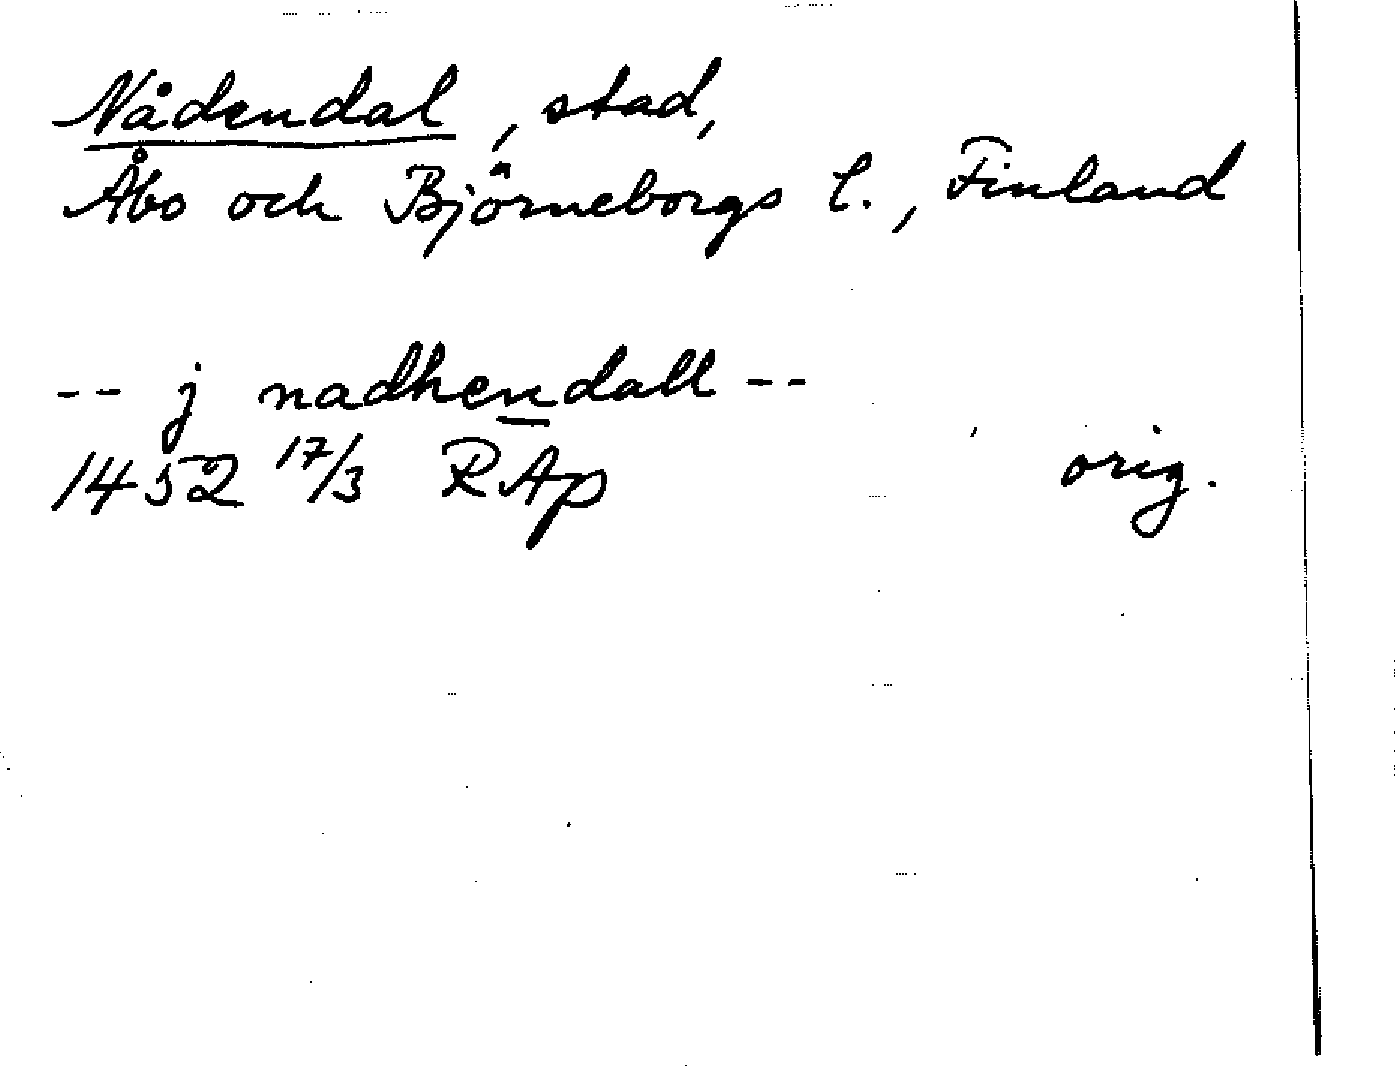 Nådendal, stad,
Åbo och Björneborgs l., Finland
-- j nadhendall --
1452 17/3 RAp orig.